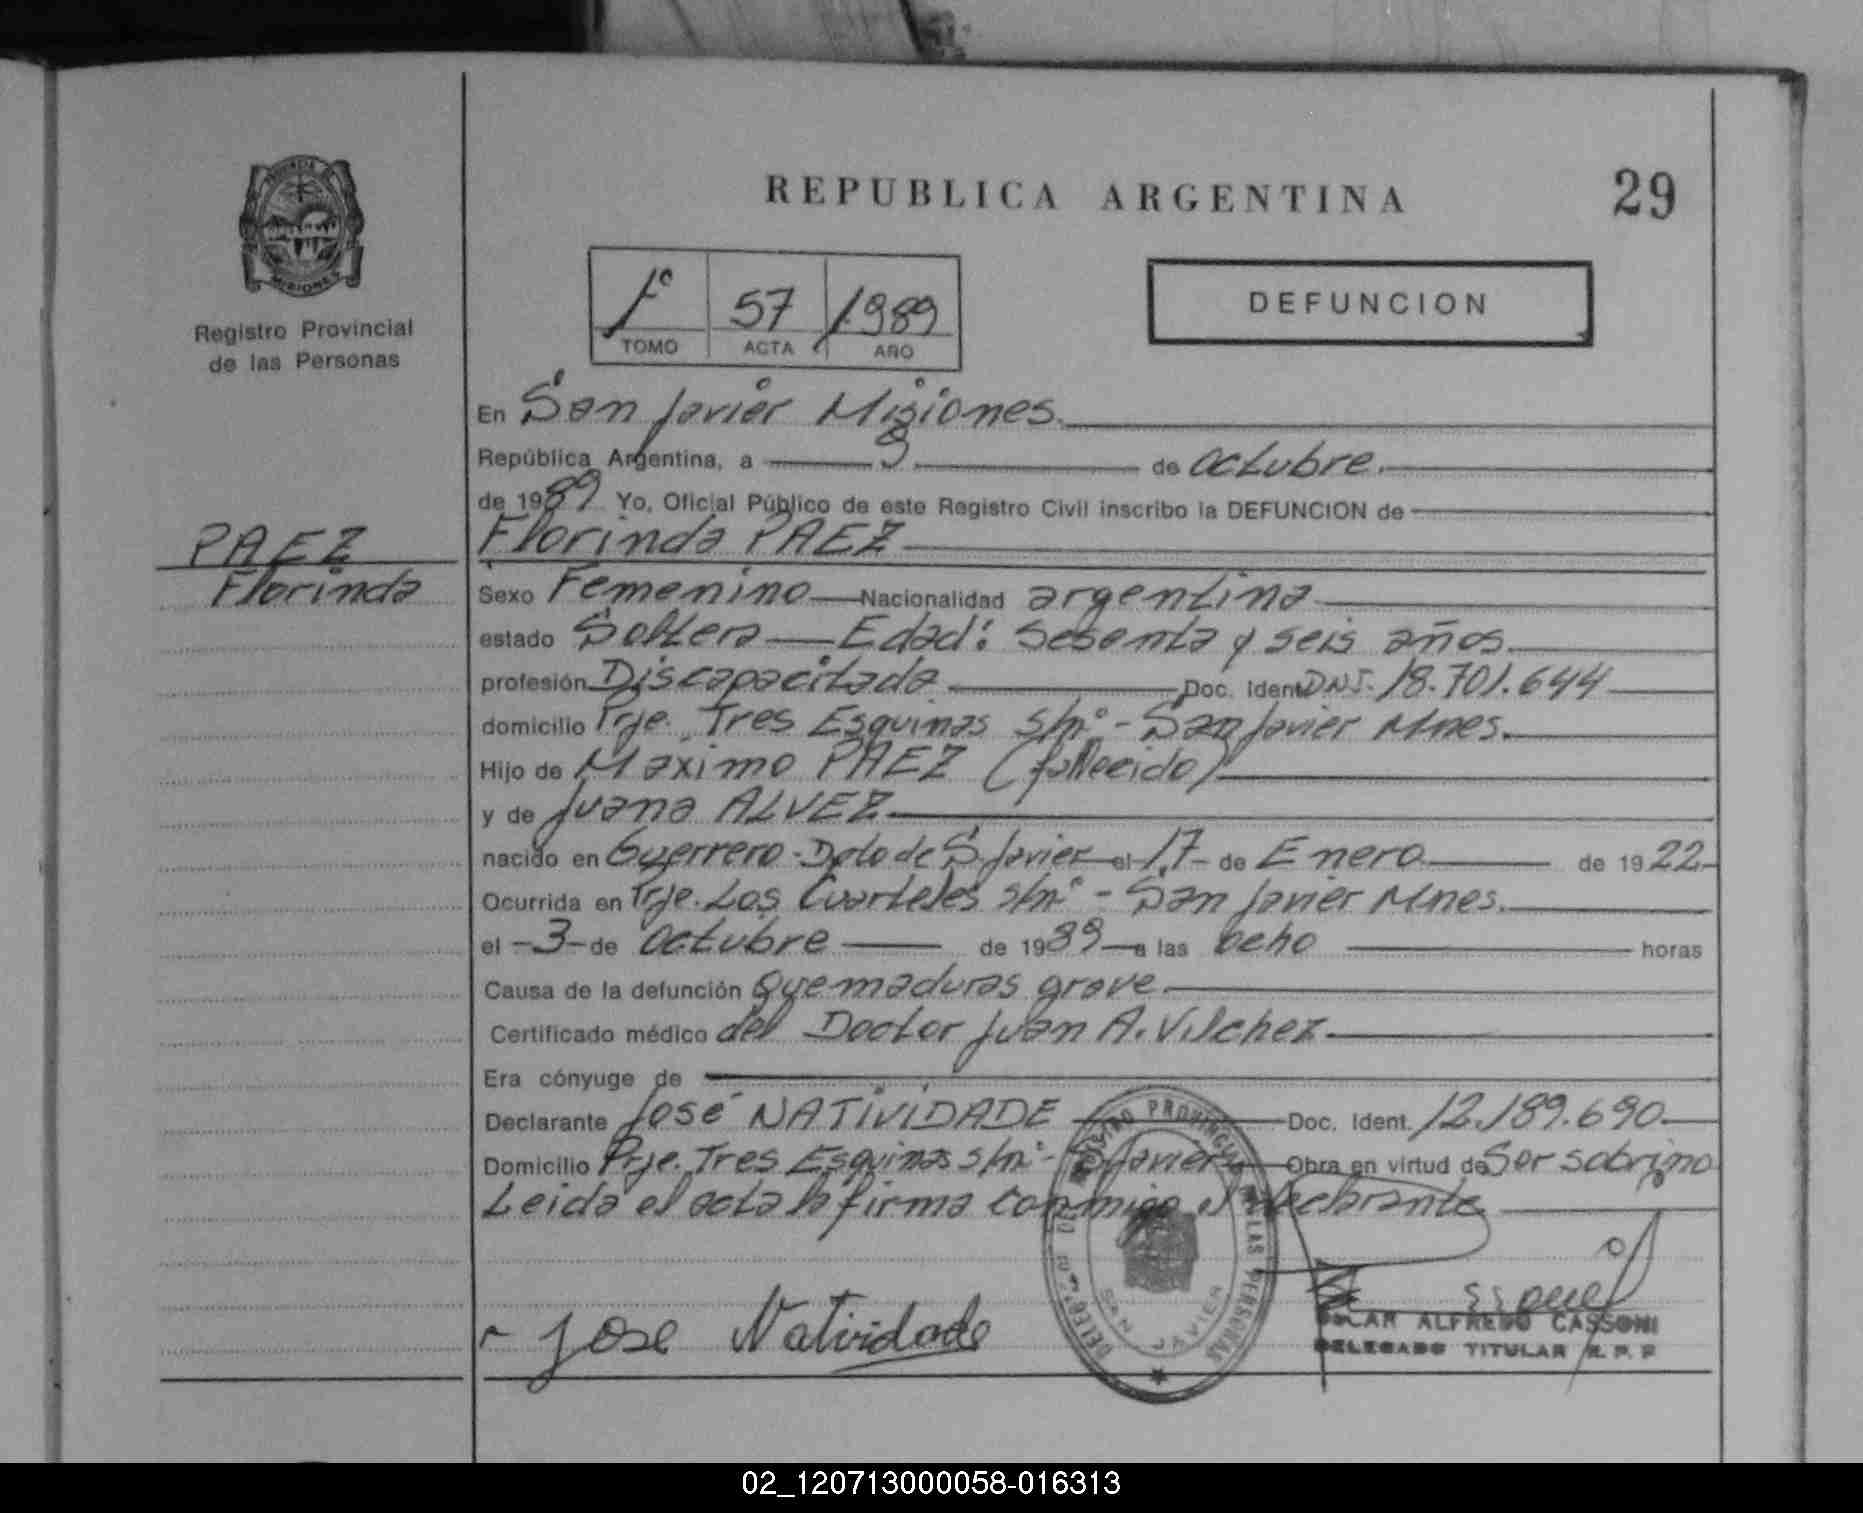 REPUBLICA ARGENTINA
29
Registro Provincial
de las Personas
1º 57 1989
TOMO ACTA AÑO
DEFUNCION
En San Javier Misiones
República Argentina, a 9 de octubre
de 1989 Yo, Oficial Público de este Registro Civil inscribo la DEFUNCION de
PAEZ
Florinda
Florinda PAEZ
Sexo Femenino Nacionalidad argentina
estado Soltera Edad: Sesenta y seis años
profesión Discapacitada Doc. Ident. DNI. 18.701.644
domicilio Prje. Tres Esquinas s/nº - San Javier Mnes.
Hijo de Maximo PAEZ (fallecido)
y de Juana ALVEZ
nacido en Guerrero - Dpto de S. Javier el 17 de Enero de 1922
Ocurrida en Prje. Los Cuarteles s/nº - San Javier Mnes.
el 3 de octubre de 1989 a las ocho horas
Causa de la defunción Quemaduras grave
Certificado médico del Doctor Juan A. Vilchez
Era cónyuge de
Declarante José NATIVIDADE Doc. Ident. 12.189.690
Domicilio Prje. Tres Esquinas s/nº - S. Javier Obra en virtud de Ser sobrino
Leida el acta la firma conmigo el declarante
REGISTRO PROVINCIAL DE LAS PERSONAS
SAN JAVIER
Jose Natividade
OSCAR ALFREDO CASSONI
DELEGADO TITULAR R. P. P
02_120713000058-016313